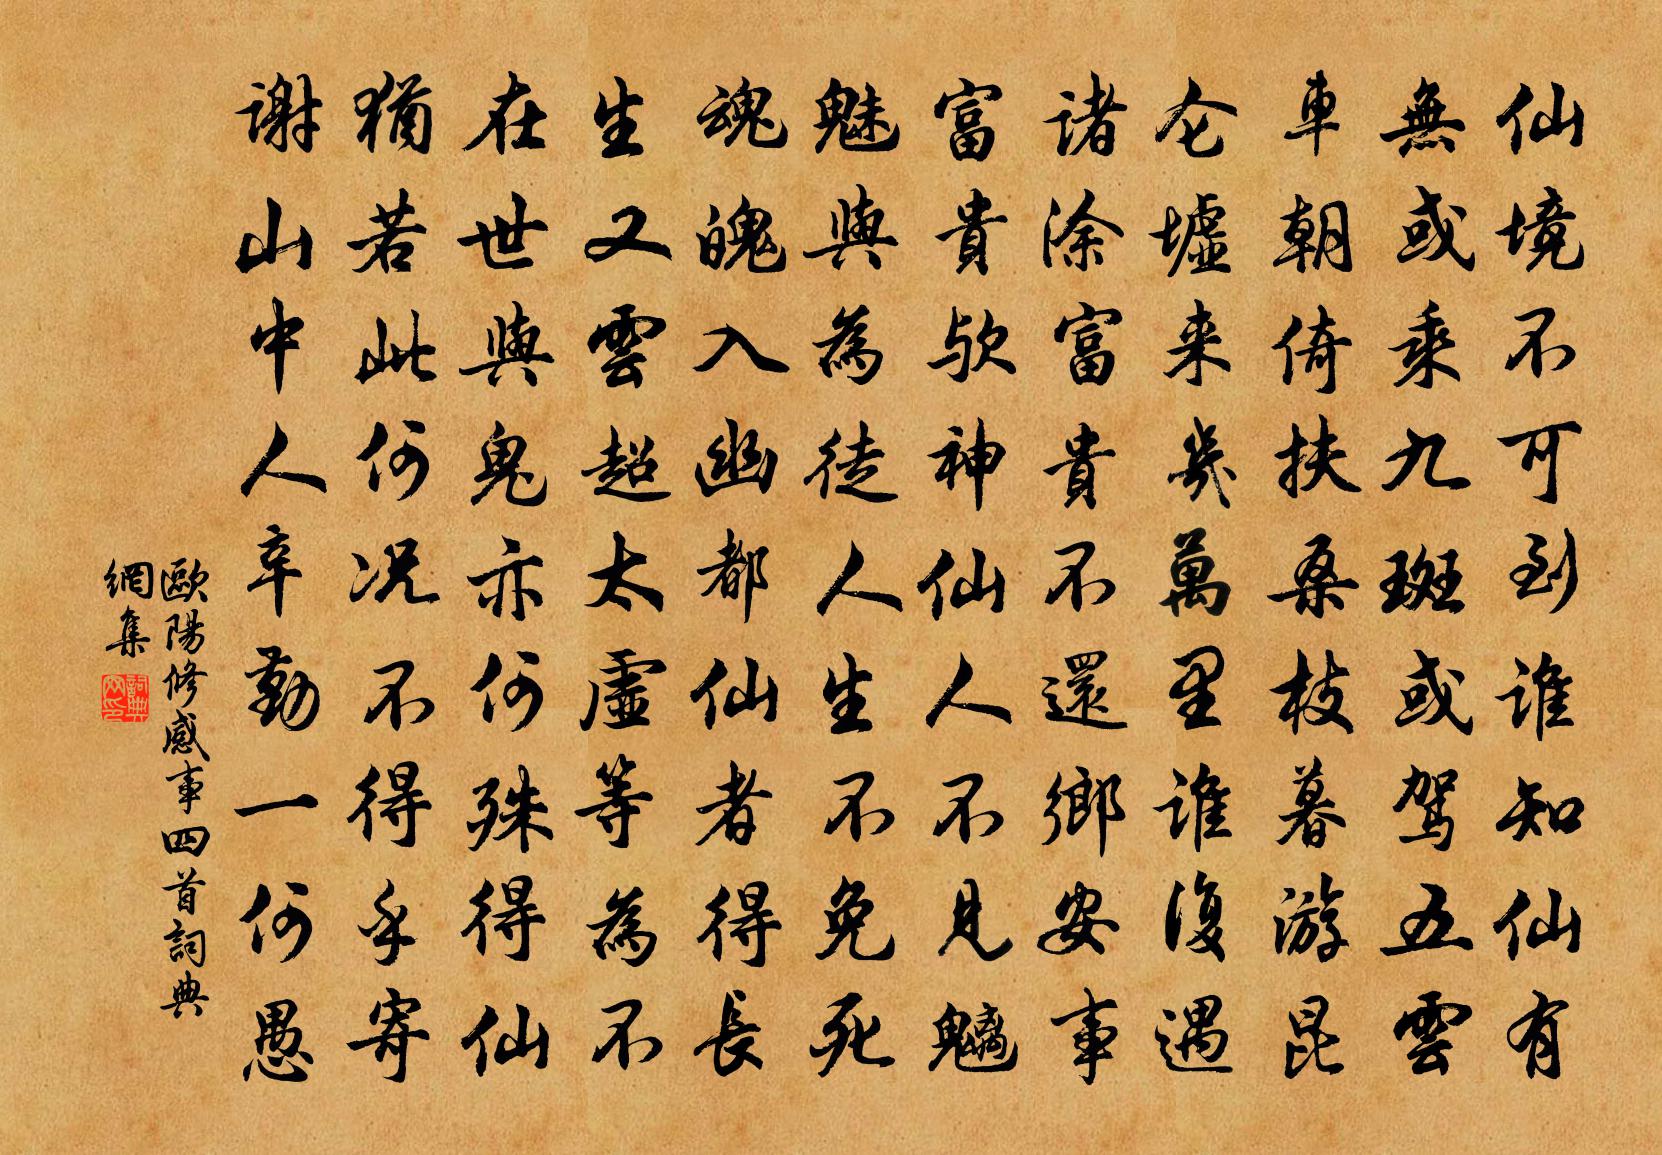 仙境不可到誰知仙有
無或乘九斑或駕五雲
車朝倚扶桑枝暮游昆
仑墟来幾萬里誰復遇
诸涂富貴不還鄉安事
富貴欤神仙人不見魑
魅與為徒人生不免死
魂魄入幽都仙者得長
生又雲超太虛等為不
在世與鬼亦何殊得仙
猶若此何况不得乎寄
谢山中人辛勤一何愚
歐陽修感事四首詞典
網集
詞典
网印